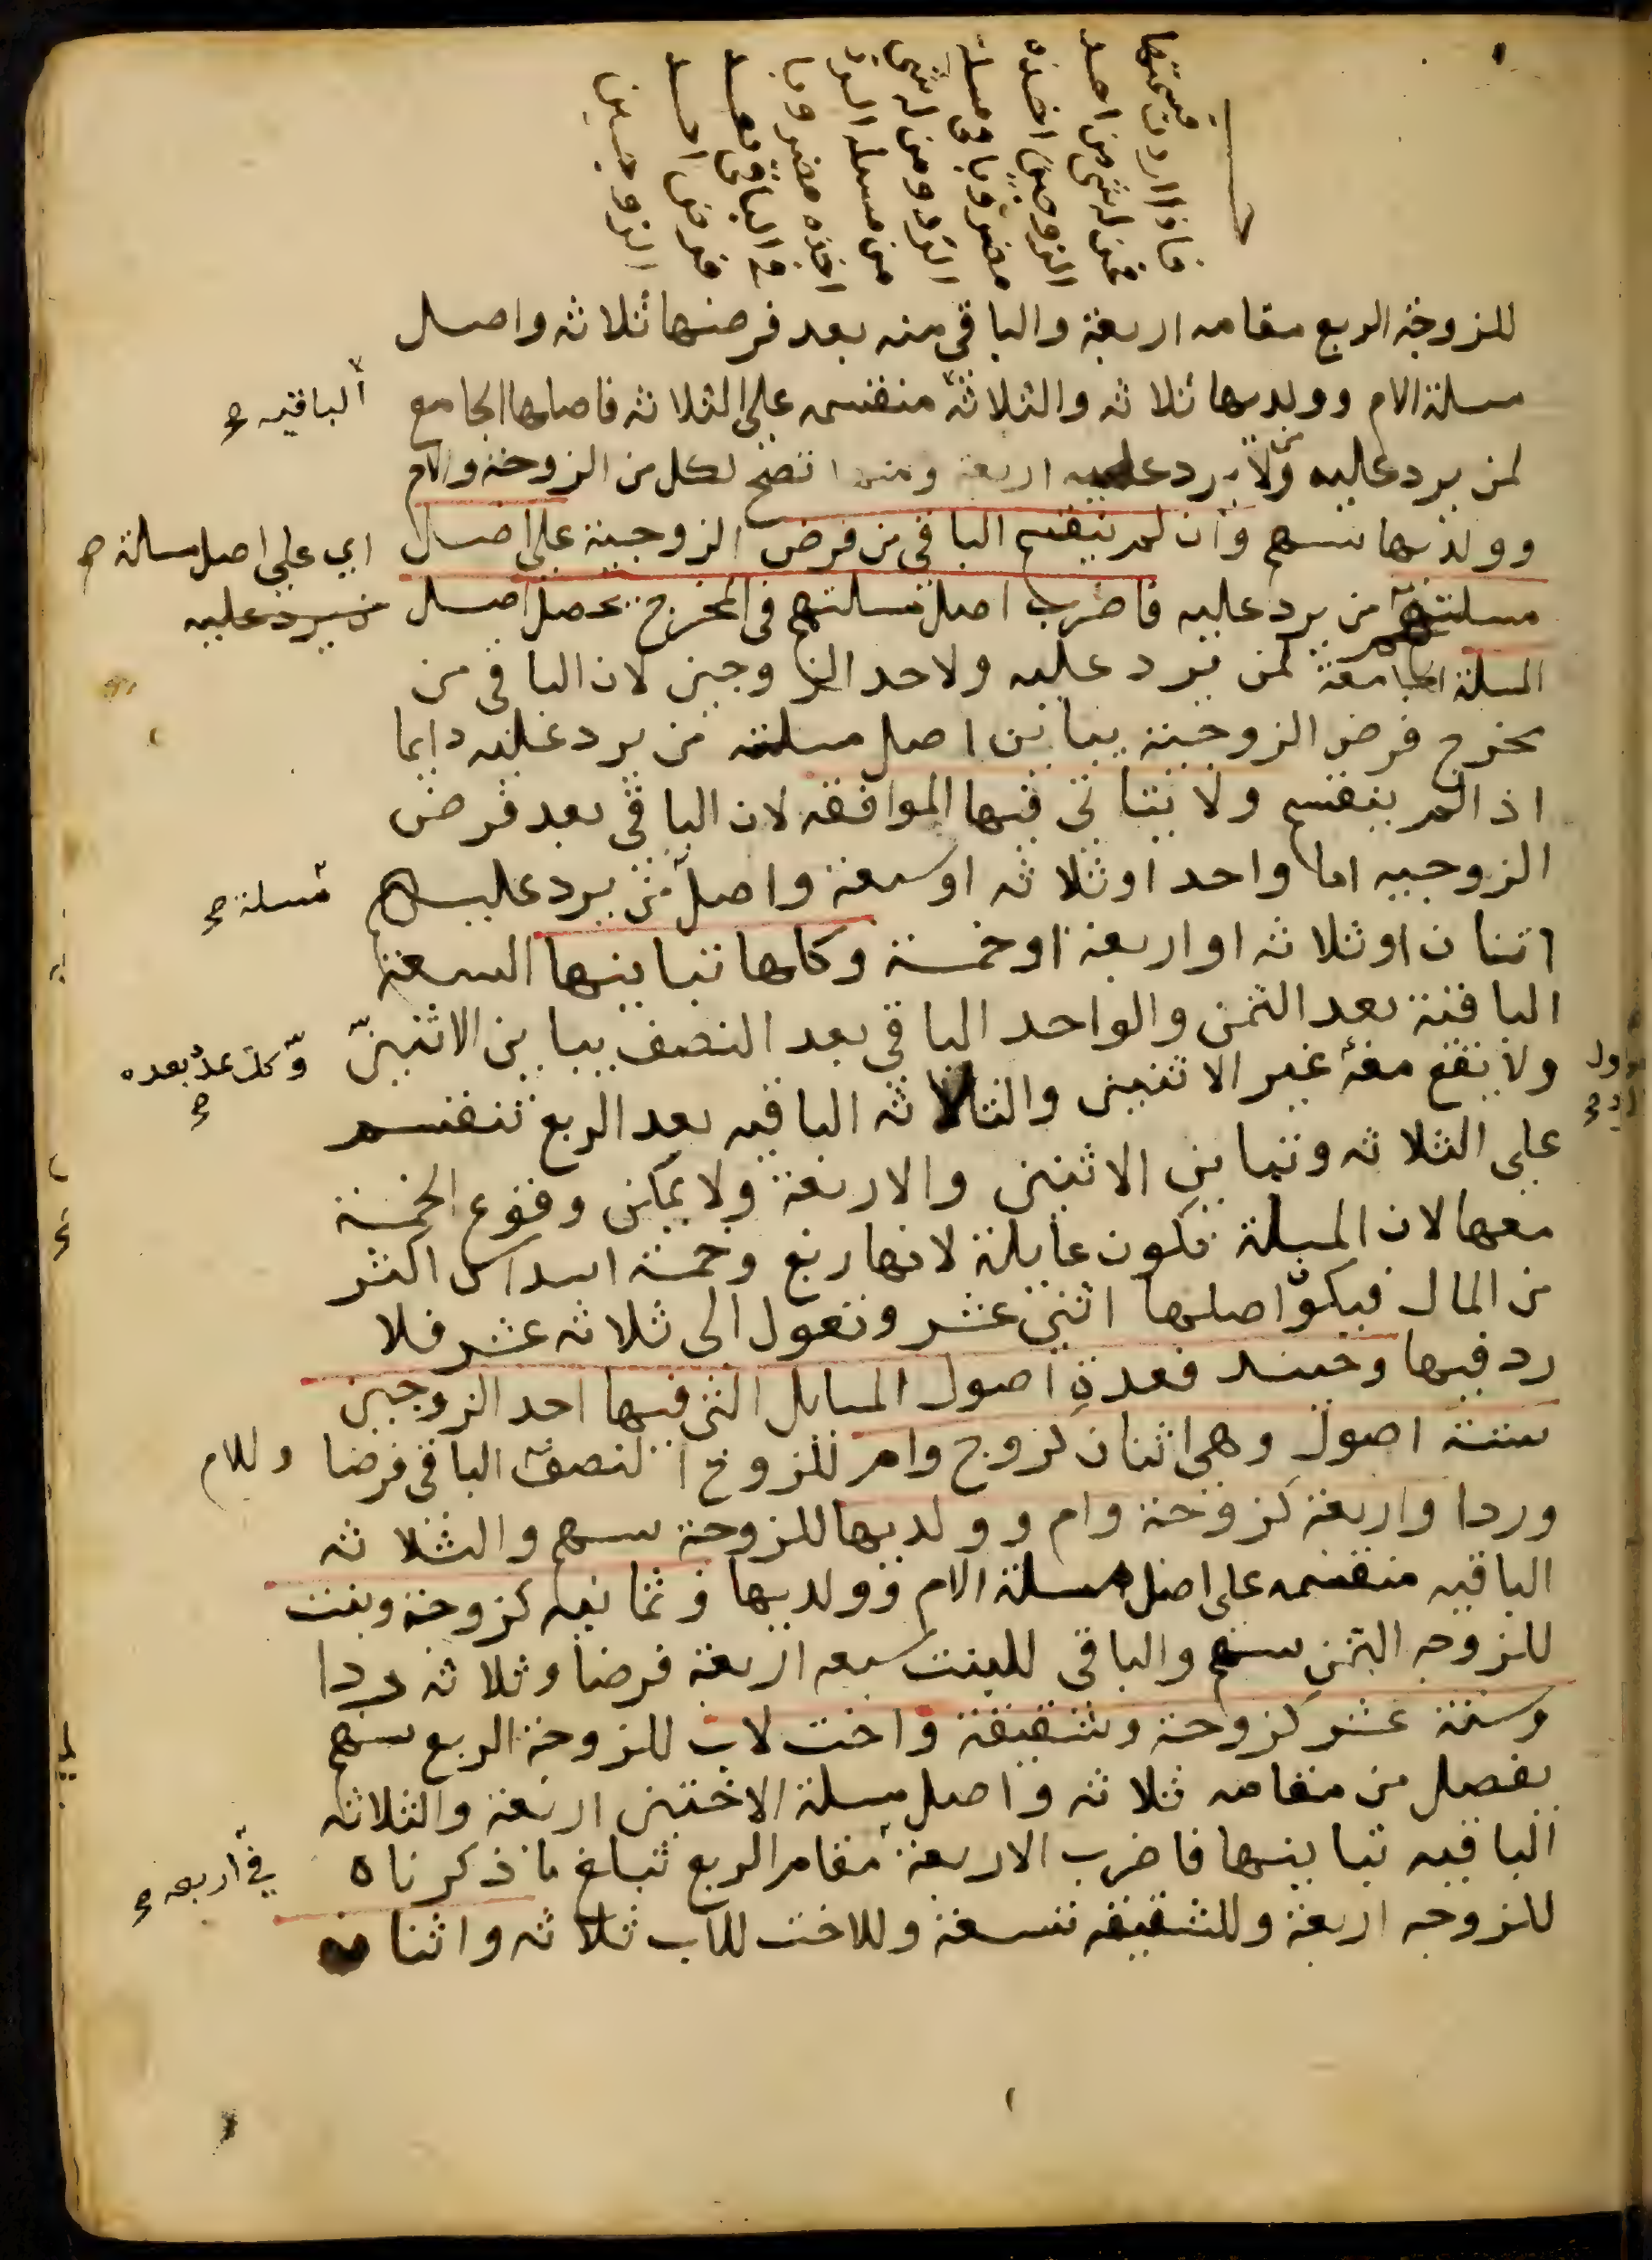 فاذا اردت قسمتها
فمن له شي من احد
الزوجين اخذه
مضروبا في مسلة
الرد ومن له شي
من مسلة الرد
اخذه مضروبا
في الباقي بعد
فرض احد
الزوجين
للزوجة الربع مقامه اربعة والباقي منه بعد فرضها ثلاثه واصل
مسلة الام وولديها ثلاثه والثلاثة منقسمه على الثلاثه فاصلها الجامع
الباقيه صح
لمن يرد عليه ولا يرد عليه اربعة ومنها تصح لكل من الزوجة والام
وولديها سهم وان لم ينقسم الباقي من فرض الزوجية على اصل
اي على اصل مسلة صح
مسلتهم من يرد عليه فاضرب اصل مسلتهم في المخرج يحصل اصل
من يرد عليه
المسلة الجامعة لمن يرد عليه ولاحد الزوجين لان الباقي من
مخرج فرض الزوجية يباين اصل مسلة من يرد عليه دايما
اذا لم ينقسم ولا يتاتى فيها الموافقه لان الباقي بعد فرض
الزوجيه اما واحد او ثلاثه او سبعة واصل من يرد عليهم
مسلة صح
اثنان او ثلاثه او اربعة او خمسة وكلها تباينها السبعة
الباقية بعد الثمن والواحد الباقي بعد النصف يباين الاثنين
وكل عدد بعده صح
ولا يقع معه غير الاثنين والثلاثه الباقيه بعد الربع تنقسم
على الثلاثه وتباين الاثنين والاربعة ولا يمكن وقوع الخمسة
معها لان المسلة تكون عايلة لانها ربع وخمسة اسداس اكثر
من المال فيكون اصلها اثني عشر وتعول الى ثلاثه عشر فلا
رد فيها وحينيد فعدة اصول المسايل التي فيها احد الزوجين
ستة اصول وهي اثنان كزوج وام للزوج النصف الباقي فرضا
وللام
وردا واربعة كزوجة وام وولديها للزوجة سهم والثلاثه
الباقيه منقسمه على اصل مسلة الام وولديها وثمانيه كزوجة وبنت
للزوجه الثمن سهم والباقي للبنت سبعه اربعة فرضا وثلاثه ردا
وستة عشر كزوجة وشقيقة واخت لاب للزوجة الربع سهم
يفضل من مقامه ثلاثه واصل مسلة الاختين اربعة والثلاثه
الباقيه تباينها فاضرب الاربعة مقام الربع تبلغ ما ذكرناه
في اربعه صح
للزوجه اربعة وللشقيقه تسعة وللاخت للاب ثلاثه واثنان